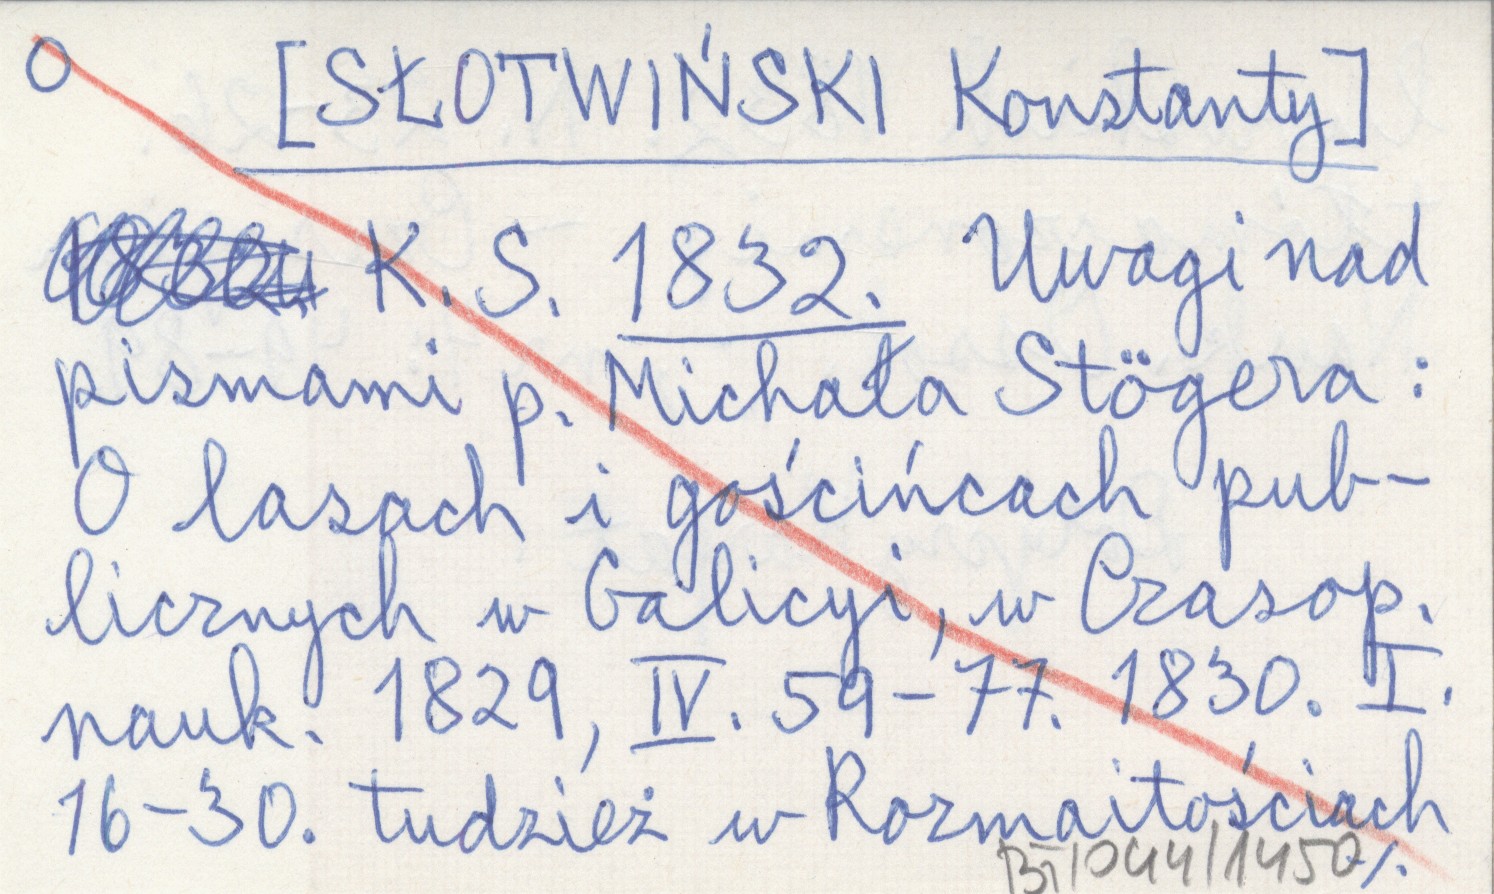 O [SŁOTWIŃSKI Konstanty]
K. S. 1832. Uwagi nad
pismami p. Michała Stögera:
O lasach i gościńcach pub-
licznych w Galicyi, w Czasop.
nauk. 1829, IV. 59-77. 1830. I.
16-30. tudzież w Rozmaitościach
BT/044/1450 ./.